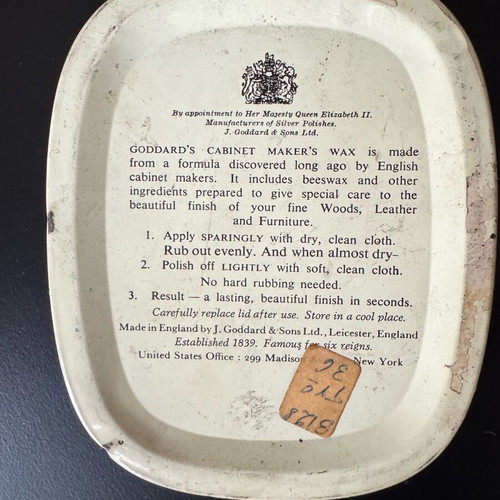 By appointment to Her Majesty Queen Elizabeth II.
Manufacturers of Silver Polishes.
J. Goddard & Sons Ltd.
GODDARD'S CABINET MAKER'S WAX is made
from a formula discovered long ago by English
cabinet makers. It includes beeswax and other
ingredients prepared to give special care to the
beautiful finish of your fine Woods, Leather
and Furniture.
1. Apply SPARINGLY with dry, clean cloth.
Rub out evenly. And when almost dry–
2. Polish off LIGHTLY with soft, clean cloth.
No hard rubbing needed.
3. Result — a lasting, beautiful finish in seconds.
Carefully replace lid after use. Store in a cool place.
Made in England by J. Goddard & Sons Ltd., Leicester, England
Established 1839. Famous for six reigns.
United States Office : 299 Madison New York